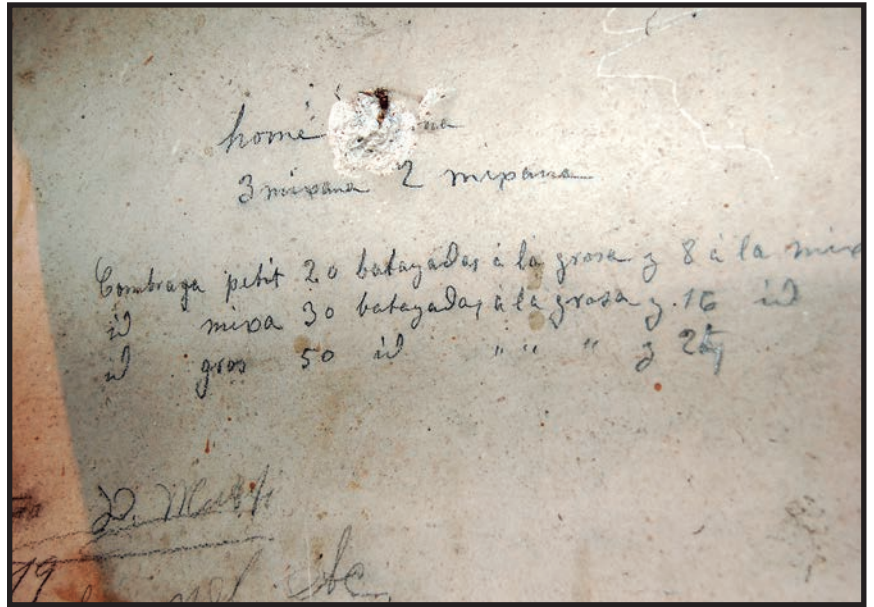 homé
3 mixana 2 mixana
Combraga petit 20 batayadas à la grosa y 8 à la mix
id mixa 30 batayadas à la grosa y 16 id
id gros 50 id " " " y 25
D.
19